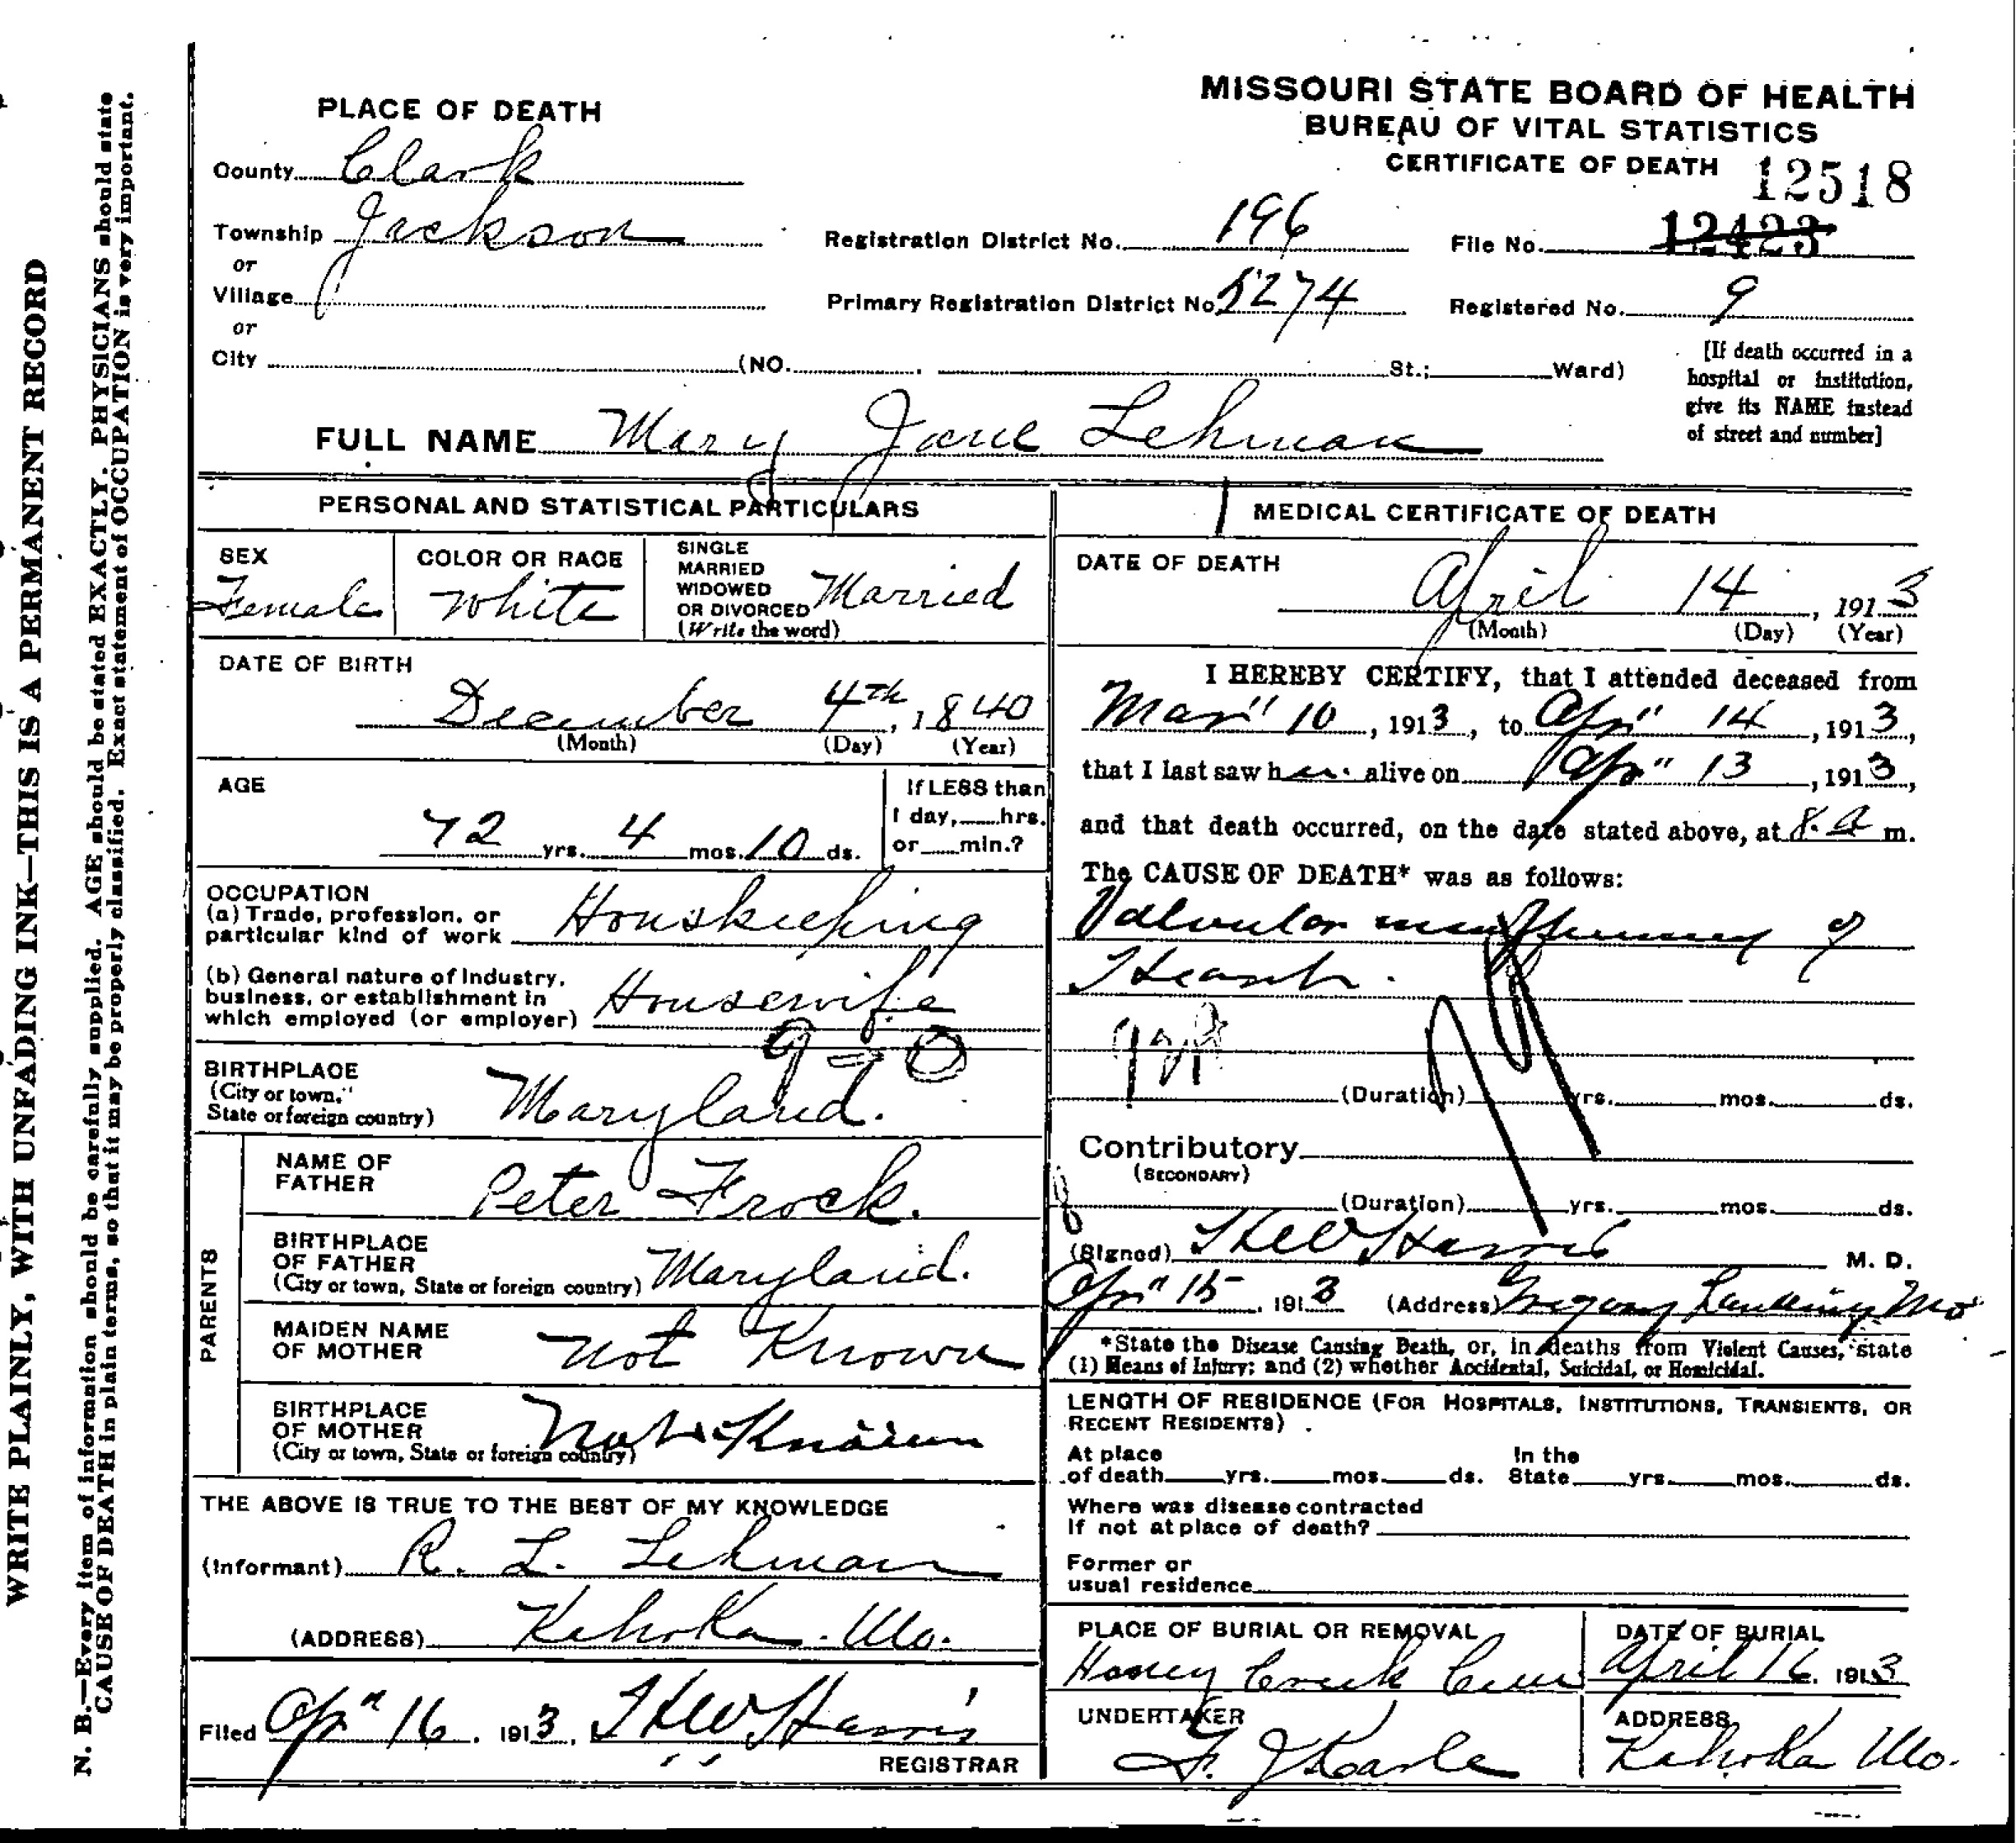 WRITE PLAINLY, WITH UNFADING INK—THIS IS A PERMANENT RECORD
N. B.—Every item of information should be carefully supplied. AGE should be stated EXACTLY. PHYSICIANS should state
CAUSE OF DEATH in plain terms, so that it may be properly classified. Exact statement of OCCUPATION is very important.
MISSOURI STATE BOARD OF HEALTH
BUREAU OF VITAL STATISTICS
CERTIFICATE OF DEATH 12518
PLACE OF DEATH
County Clark
Township Jackson Registration District No. 196 File No. 12423
or
Village Primary Registration District No. 5274 Registered No. 9
or
City (NO. St.; Ward)
[If death occurred in a
hospital or institution,
give its NAME instead
of street and number]
FULL NAME Mary Jane Lehman
PERSONAL AND STATISTICAL PARTICULARS
SEX
Female
COLOR OR RACE
White
SINGLE
MARRIED
WIDOWED
OR DIVORCED
(Write the word)
Married
DATE OF BIRTH
December 4th, 1840
(Month) (Day) (Year)
AGE
72 yrs. 4 mos. 10 ds.
If LESS than
1 day, hrs.
or min.?
OCCUPATION
(a) Trade, profession, or
particular kind of work Houskeeping
(b) General nature of Industry,
business, or establishment in
which employed (or employer) Housewife
9-0
BIRTHPLACE
(City or town,
State or foreign country) Maryland.
PARENTS
NAME OF
FATHER Peter Frock.
BIRTHPLACE
OF FATHER
(City or town, State or foreign country) Maryland.
MAIDEN NAME
OF MOTHER Not Known
BIRTHPLACE
OF MOTHER
(City or town, State or foreign country) Not Known
THE ABOVE IS TRUE TO THE BEST OF MY KNOWLEDGE
(Informant) R. L. Lehman
(ADDRESS) Kahoka. Mo.
Filed Apr 16, 1913, Harris
REGISTRAR
MEDICAL CERTIFICATE OF DEATH
DATE OF DEATH
April 14, 1913
(Month) (Day) (Year)
I HEREBY CERTIFY, that I attended deceased from
Mar 10, 1913, to Apr 14, 1913,
that I last saw her alive on Apr 13, 1913,
and that death occurred, on the date stated above, at 8. a m.
The CAUSE OF DEATH* was as follows:
Valvular of
Heart.
(Duration) yrs. mos. ds.
Contributory
(SECONDARY)
(Duration) yrs. mos. ds.
(Signed) Harris M. D.
Apr 15, 1913 (Address) Gregory Landing Mo
*State the Disease Causing Death, or, in deaths from Violent Causes, state
(1) Means of Injury; and (2) whether Accidental, Suicidal, or Homicidal.
LENGTH OF RESIDENCE (FOR HOSPITALS, INSTITUTIONS, TRANSIENTS, OR
RECENT RESIDENTS).
At place In the
of death yrs. mos. ds. State yrs. mos. ds.
Where was disease contracted
If not at place of death?
Former or
usual residence
PLACE OF BURIAL OR REMOVAL
Honey Creek Cem
DATE OF BURIAL
April 16, 1913
UNDERTAKER
F. J Karle
ADDRESS
Kahoka Mo.